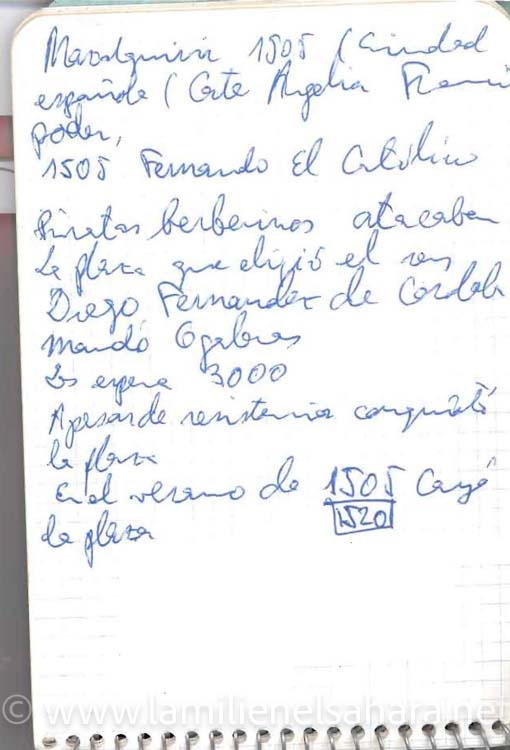 Mazalquivir 1505 (Ciudad
española (Corte Argelia
poder,
1505 Fernando El Católico
Piratas berberiscos atacaban
la plaza que eligió el rey
Diego Fernandez de Cordoba
mandó 6 galeras
3000
Apesar de resistencia conquistó
la plaza
En el verano de 1505 Cayó
1520
la plaza
© www.lamilienelsahara.net